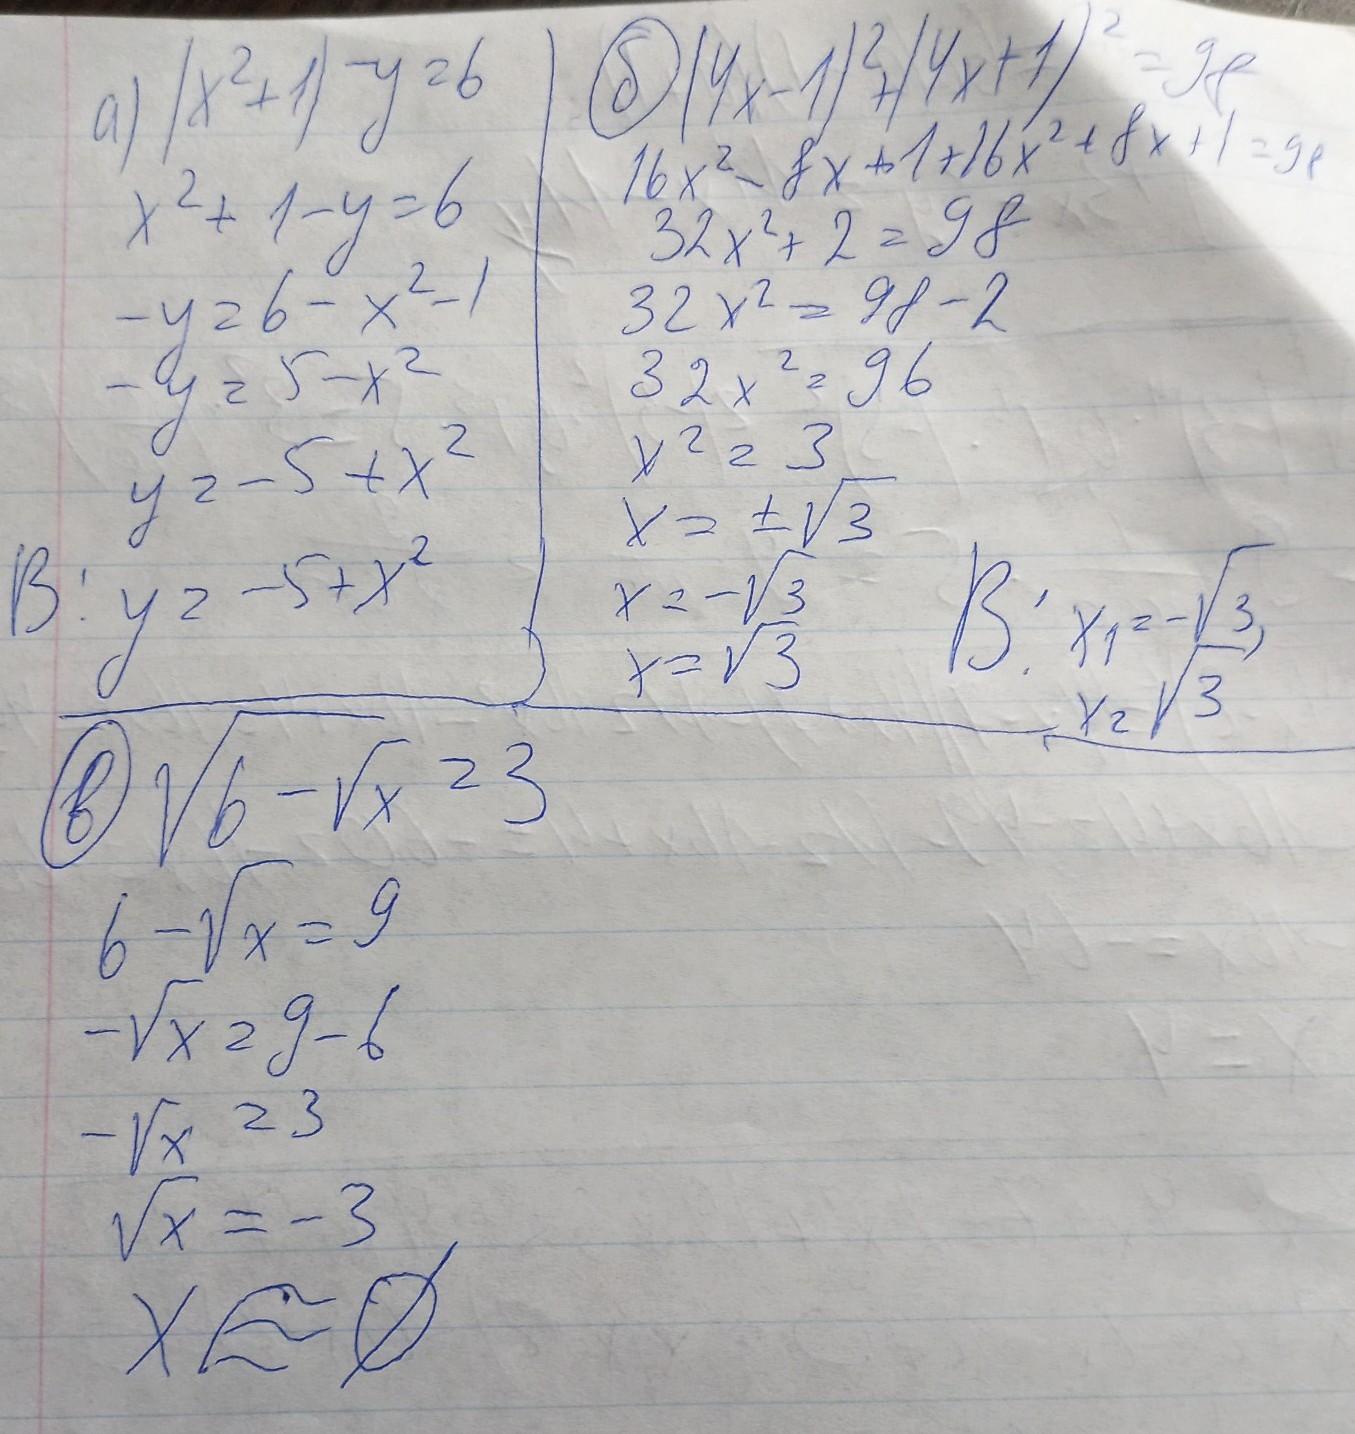 а) (x²+1)-y=6
x²+1-y=6
-y=6-x²-1
-y=5-x²
y=-5+x²
В: y=-5+x²
б (4x-1)²+(4x+1)²=98
16x²-8x+1+16x²+8x+1=98
32x²+2=98
32x²=98-2
32x²=96
x²=3
x=±√3
x=-√3
x=√3
В: x₁=-√3,
x=√3
в √(6-√x)=3
6-√x=9
-√x=9-6
-√x=3
√x=-3
x∈∅